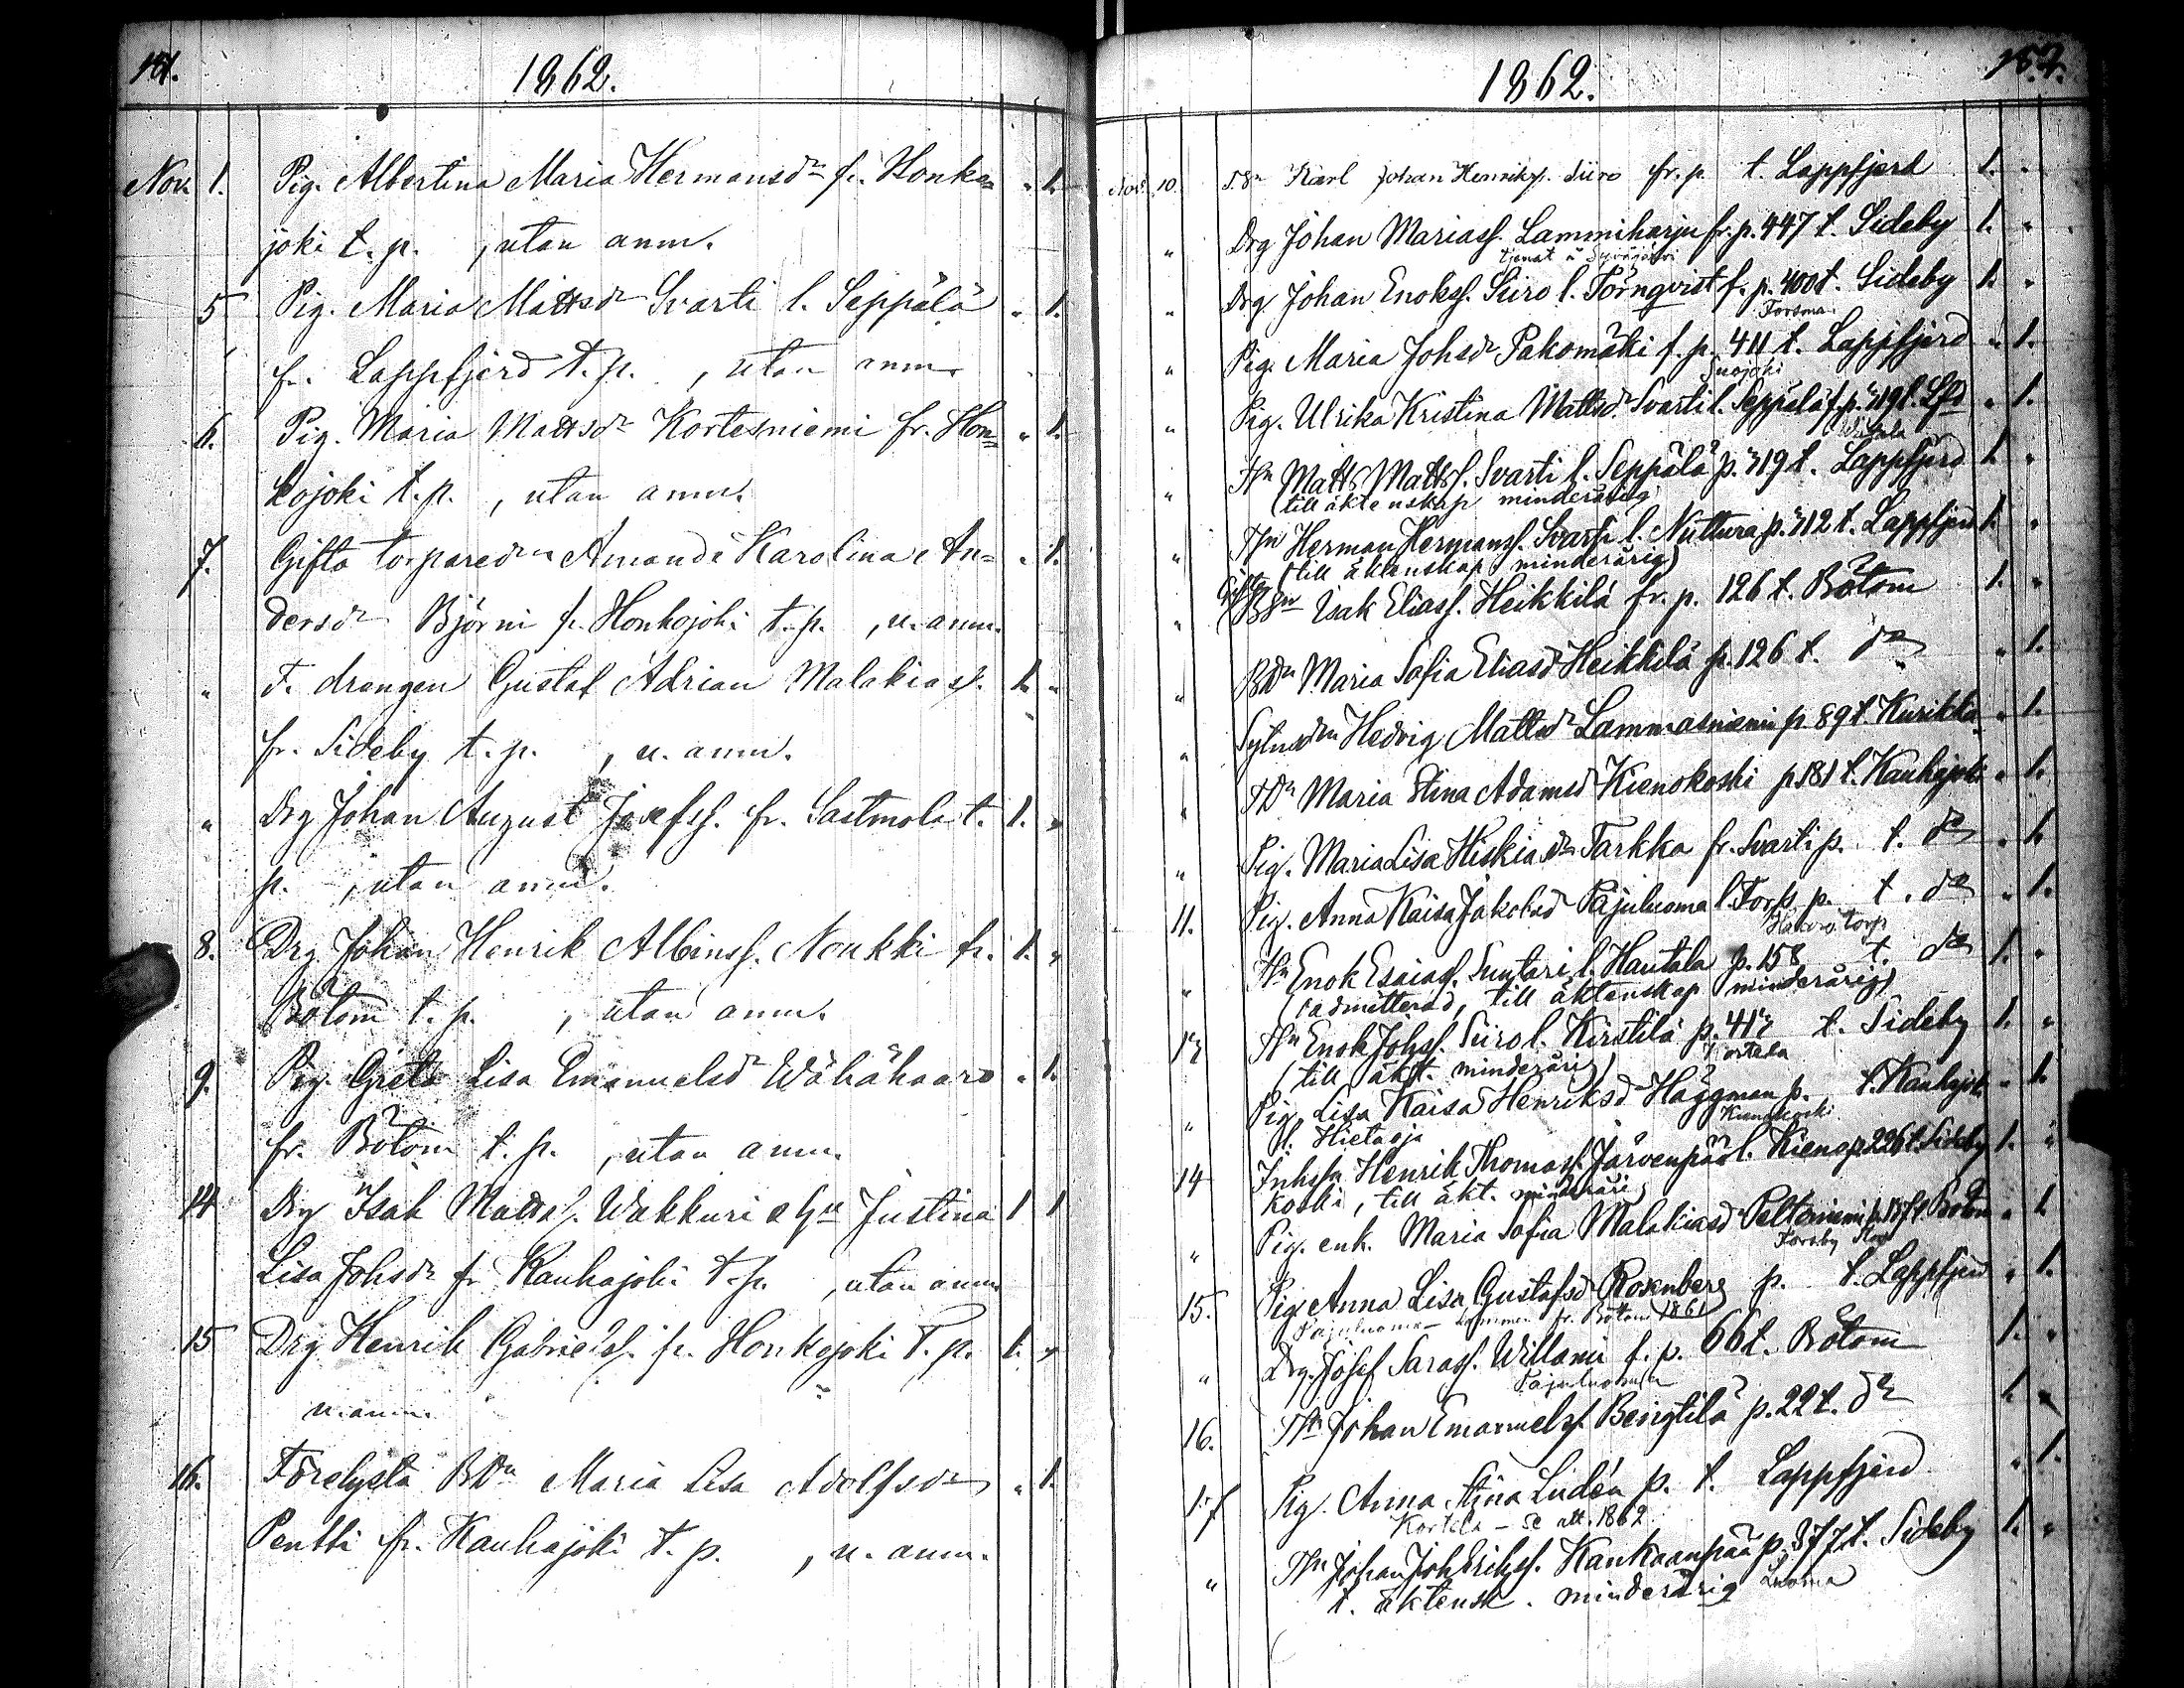 1862.
Nov. 1. Pig. Albertina Maria Hermansdr fr. Honka= " 1.
joki t. p. , utan anm.
5 Pig. Maria Mattsdr Svarti l. Seppälä " 1.
fr. Lappfjerd t. p. , utan anm.
6. Pig. Maria Mattsdr Kortesniemi fr. Hon= " 1.
kojoki t. p. , utan anm.
7. Gifta torparedn Amanda Karolina An= " 1.
dersdr Björni fr. Honkojoki t. p. , u. anm.
" F. drangen Gustaf Adrian Malakiass. 1. "
fr. Sideby t. p. , u. anm.
" Drg Johan August Josefss. fr. Sastmola t. 1. "
p. , utan anm.
8. Drg Johan Henrik Albinss. Noukki fr. 1. "
Bötom t. p. , utan anm.
9. Pig. Greta Lisa Emanuelsdr Wähähaaro " 1.
fr. Bötom t. p. , utan anm.
14 Drg Isak Mattss. Wakkuri o Hu Justina 1 1
Lisa Johsdr fr Kauhajoki t. p. , utan anm
15 Drg Henrik Gabrielss. fr. Honkojoki t. p. 1. "
u. anm.
16. Förelysta BDn Maria Lisa Adolfsdr " 1.
Pentti fr. Kauhajoki t. p. , u. anm.
1862. 152.
Nov. 10. Karl Johan Henrikss. Siiro fr. p. t. Lappfjerd 1. "
" Drg Johan Mariass. Lammiharju fr. p. 447 t. Sideby 1. "
tjenat å
" Drg. Johan Enokss. Siiro l. Törnqvist f. p. 400 t. Sideby 1. "
" Pig. Maria Johsdr Pakomäki f. p. 411 t. Lappfjerd " 1.
" Pig. Ulrika Kristina Mattsdr Svarti l. Seppälä f. p. 319 t. Lfd " 1.
" Matts Mattss. Svarti l. Seppälä p. 319 t. Lappfjerd 1. "
(till äktenskap minderårig)
" Herman Hermanss. Svarti l. Nuttura p. 312 t. Lappfjerd 1. "
(till äktenskap minderårig)
" Gifta Isak Eliass. Heikkilä fr. p. 126 t. Bötom 1. "
" BDn Maria Sofia Eliasd Heikkilä p. 126 t. do " 1.
" Hedvig Mattsdr Lammasniemi p. 89 t. Kurikka " 1.
" TDn Maria Stina Adamsd Kienokoski p 181 t. Kauhajoki " 1.
" Pig. Maria Lisa Hiskiasdr Tarkka fr. Svarti p. t. do " 1.
11. Pig. Anna Kaisa Jakobsd Pajuluoma l. Torp p. t. do " 1.
" Enok Esaiass. Suutari l. Hautala p. 158 t. do 1. "
(admitterad, till äktenskap minderårig)
Enok Johss. Siiro l. Kirstilä p. t. Sideby 1. "
(till äkt. minderårig)
" Pig. Lisa Kaisa Henriksd Häggman p. t. Kauhajoki " 1.
l. Hietaoja
14 Henrik Thomass. Järvenpää l. Kieno p 226 t. Sideby 1. "
koski, till äkt. minderårig
" Pig. enk. Maria Sofia Malakiasd Peltoniemi p. t. Bötom " 1
15. Pig Anna Lisa Gustafsd Rosenberg p. t. Lappfjerd " 1.
Pajuluoma — fr. Bötom 1861
" Drg. Josef Sarass. Willami f. p. 66 t. Bötom 1. "
Pajuluoma
16. Johan Emanuelss. Bengtilä p. 22 t. do 1. "
17 Pig. Anna Stina Lindén p. t. Lappfjerd " 1.
Kortela — se att. 1862
" Johan Joh Erikss. Kankaanpää p. 377 t. Sideby 1. "
t. äktensk. minderårig Luoma